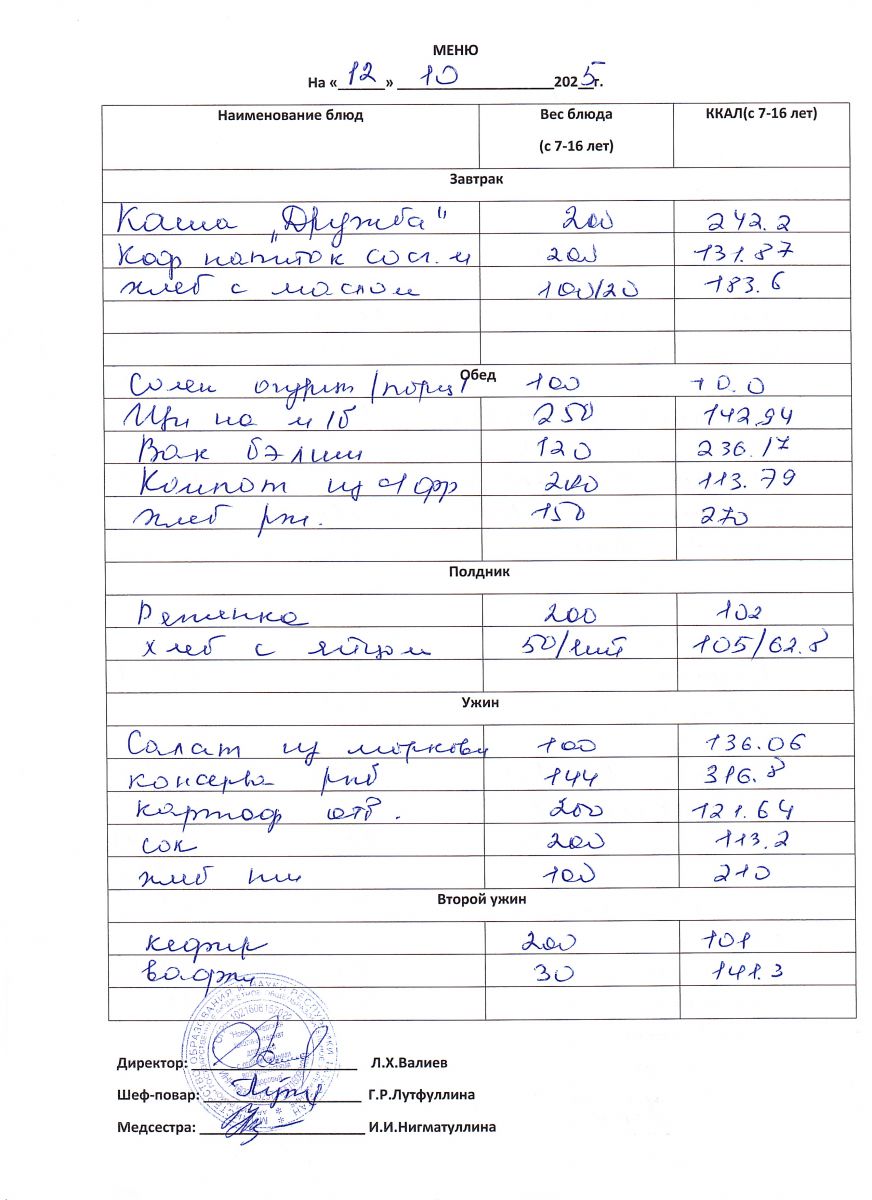 МЕНЮ
На «12» 10 2025 г.
Наименование блюд Вес блюда (с 7-16 лет) ККАЛ(с 7-16 лет)
Завтрак
Каша „Дружба" 200 242.2
Коф напиток со сг. м 200 131.87
хлеб с маслом 100/20 183.6
Обед
Солен огурцы /порц/ 100 10.0
Щи на м/б 250 142,94
Вак бэлиш 120 236.17
Компот из с/фр 200 113.79
хлеб рж. 150 270
Полдник
Ряженка 200 102
хлеб с яйцом 50/1шт 105/62.8
Ужин
Салат из моркови 100 136.06
консерва рыб 144 316.8
картоф отв. 200 121.64
сок 200 113.2
хлеб пш 100 210
Второй ужин
кефир 200 101
вафли 30 141.3
Директор: Л.Х.Валиев
Шеф-повар: Г.Р.Лутфуллина
Медсестра: И.И.Нигматуллина